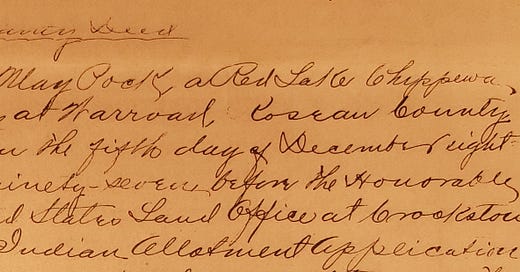 ranty Deed
May Pock, a Red Lake Chippewa,
at Warroad, Roseau County
the fifth day of December eight-
ninety-seven, before the Honorable
d States Land Office at Crookston
Indian Allotment Application